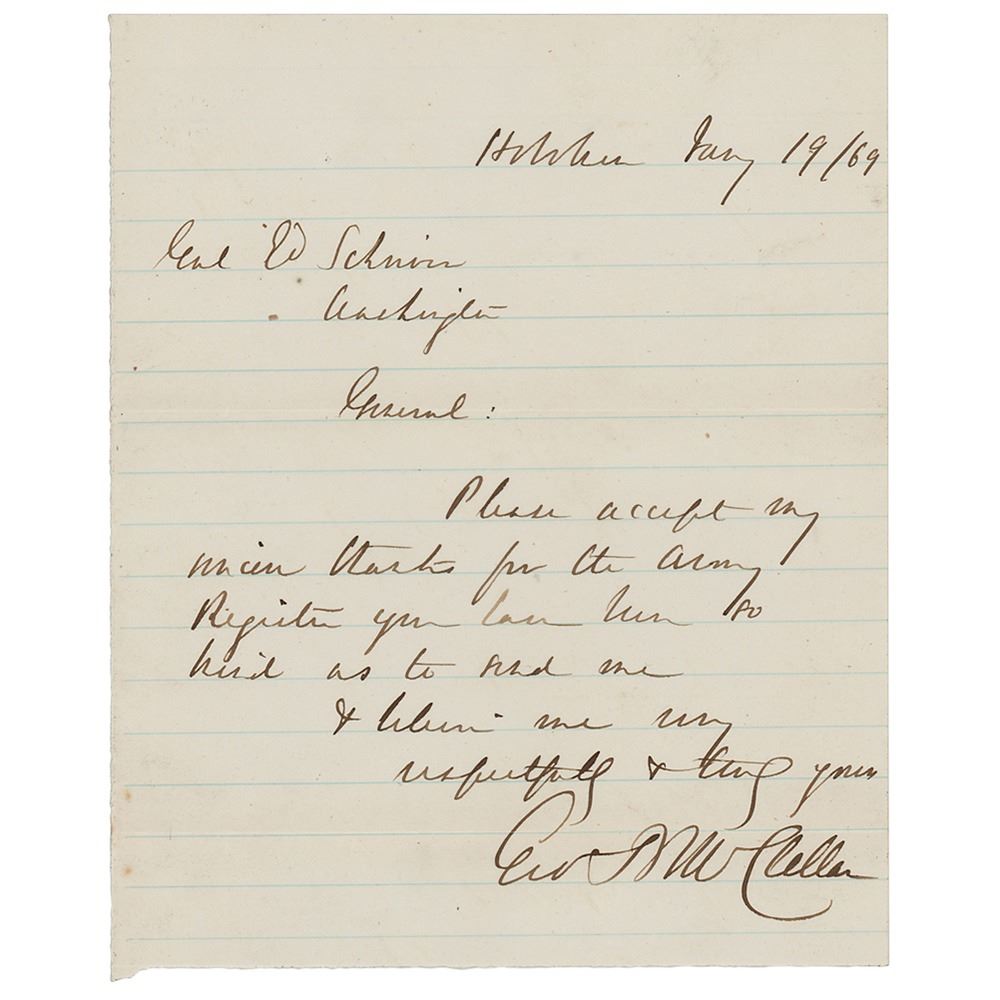 Hoboken Jany 19/69
Genl Ed Schriver
Washington
General:
Please accept my
sincere thanks for the Army
Register you have been so
kind as to send me
& believe me very
respectfully & truly yours
Geo B McClellan